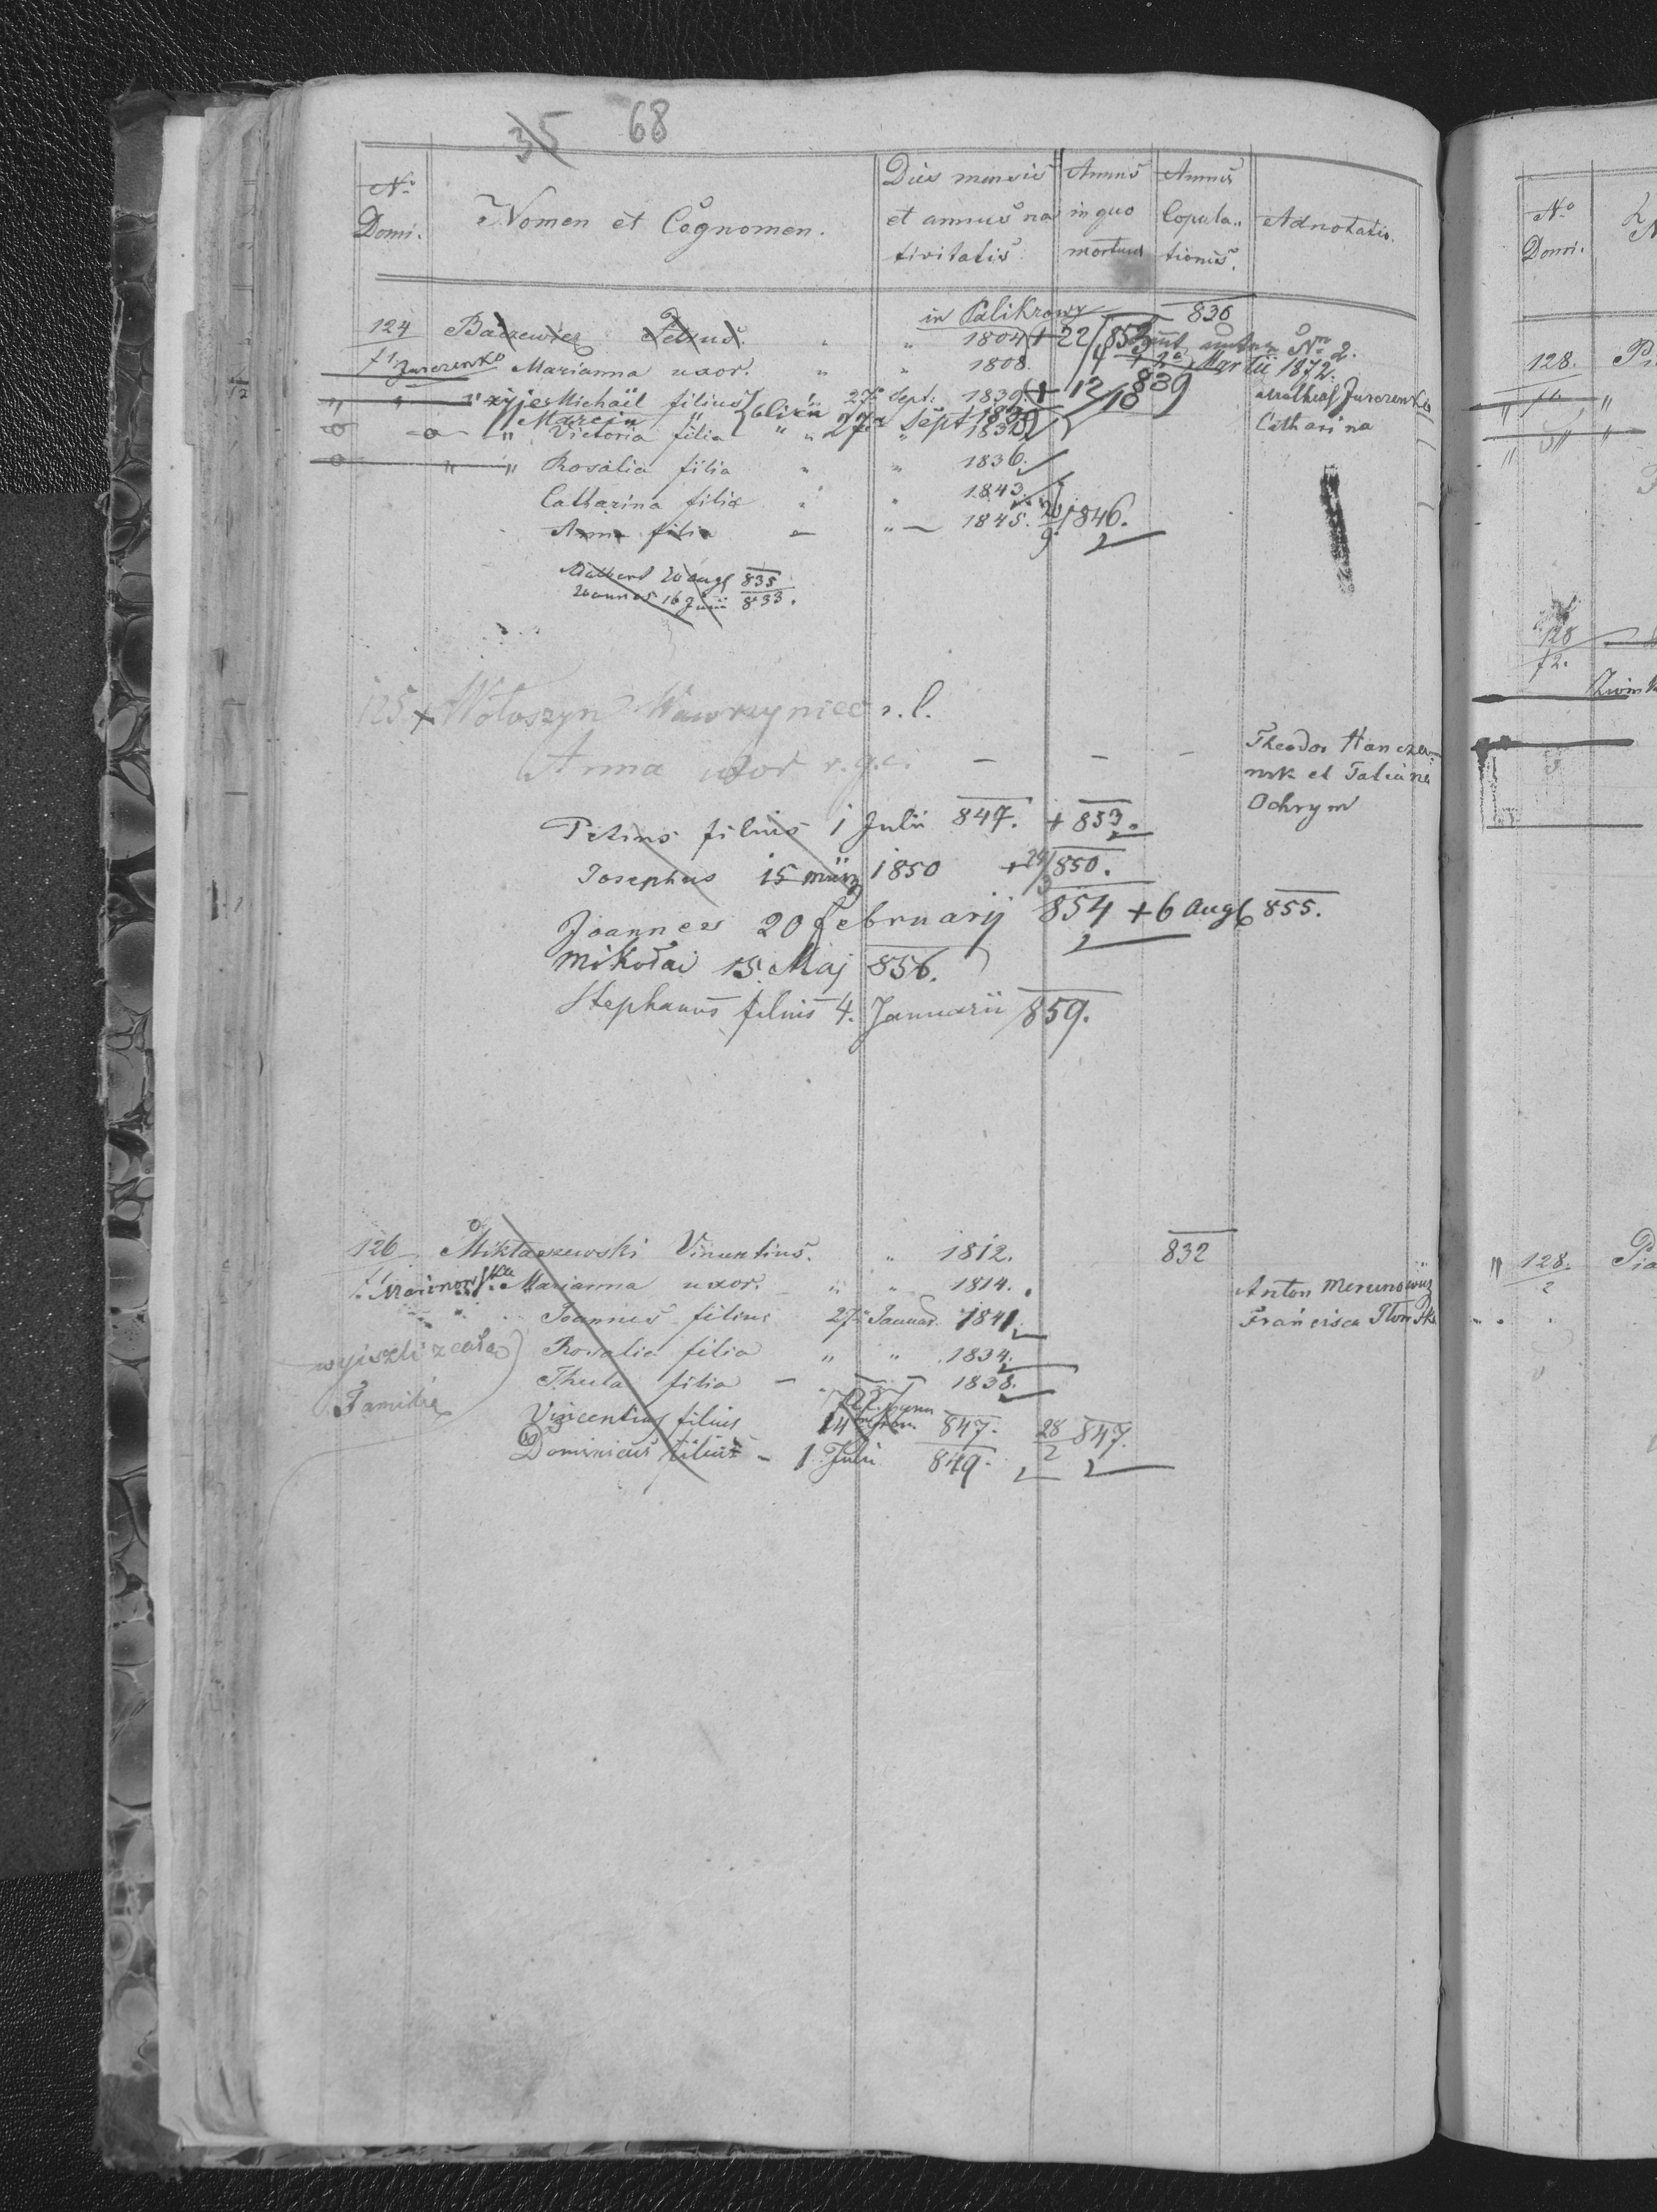 35 68
No Domi. Nomen et Cognomen. Dies mensis et annus nativitatis Annus in quo mortuus Annus Copulationis. Adnotatio.
in Palikrowy 830
124 Baczewicz Petrus. " " 1804 + 22/4 852
Marianna uxor. " " 1808. Martii 1872.
" " " żyje Michaël filius 27a Sept: 1839. + 12/10 839 Mathias Jurczenko
Marcin " bliźn 27a Sept 1839
" Victoria filia " " " 1832 Catharina
" " Rosalia filia " " 1836.
Catharina filia " " 1843.
Anna filia – " – 1845. 20/9 1846.
Adalbert 20 Aug 835
Joannes 16 Junii 833.
125 + Wołoszyn Wawrzyniec r. l.
Anna uxor r. g. c. – – –
Theodor Hanczaruk et Tatiana
Ochrym
Petrus filius 1 Julii 847. + 853.
Josephus 15 März 1850 + 24/3 850.
Joannes 20 Februarij 854 + 6 Aug 855.
Mikołai 15 Maj 856.
Stephanus filius 4. Januarii 859.
126 Miktaszewski Vincentius. " 1812. 832
Marianna uxor. " " 1814. Anton Merunowicz
" " Joannes filius 27a Januar. 1841. Francisca
wyiszli z całą Rosalia filia " " 1834.
Familią Thecla filia – – – 1838.
Vincentius filius 847. 28/2 847.
Dominicus filius – 1 Julii 849.
No Domi.
128.
128
/2.
" 128. Pia
2